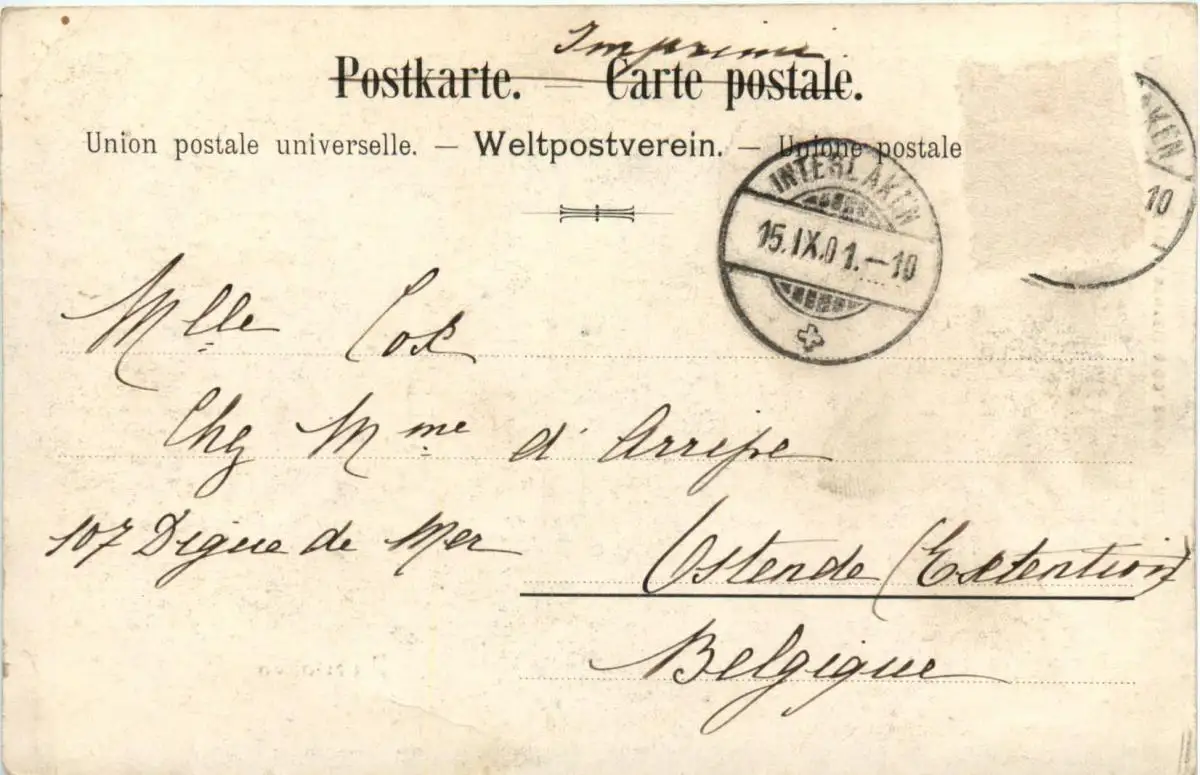 Imprimé
Postkarte. — Carte postale.
Union postale universelle. — Weltpostverein. — Unione postale
INTERLAKEN
15.IX.01.—10
AKEN
10
Mlle Cox
Chz Mme d'Arripe
107 Digue de Mer
Ostende (Extention)
Belgique